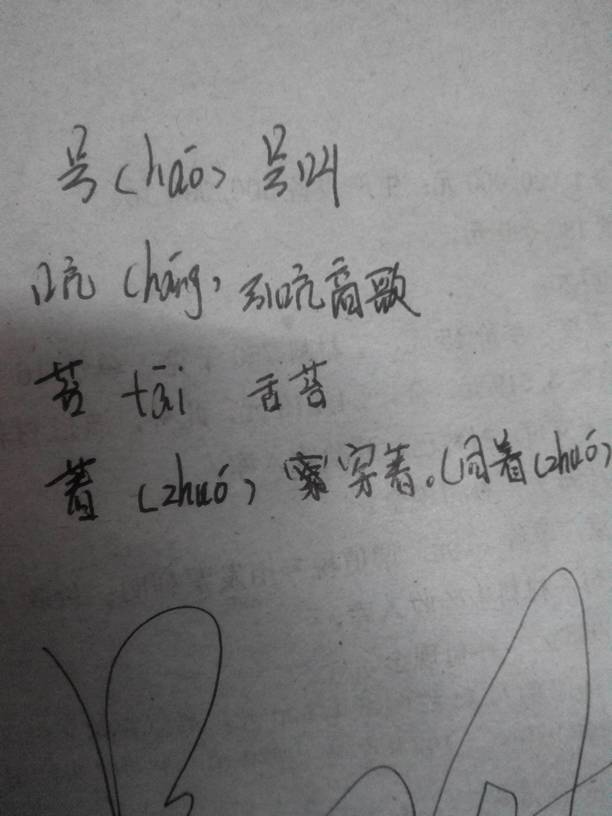 号(háo)号叫
吭(háng)引吭高歌
苔 tāi 舌苔
著(zhuó)穿著。(同着(zhuó)